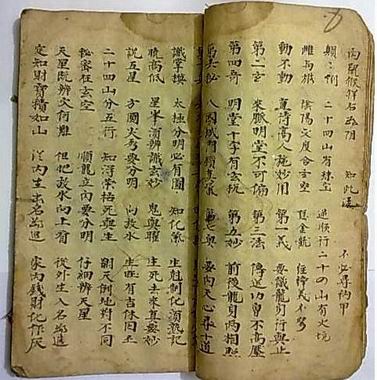 二十四山有珠宝 逆順行 二十四山有火坑
雌與雄 陰陽交度合玄空 認金龍 一經一緯義不窮
動不動 直待高人施妙用 第一義 要識龍身行與止
第二言 來脈明堂不可偏 第三法 傳送功曹不高壓
第四奇 明堂十字有玄机 第五妙 前後龍身兩相照
八國城門鎖 氣 第七奧 要向天心尋十道
識掌模 太極分明必有圖 知化氣 生尅制化須熟記
曉高低 星峯須辨識玄妙 鬼與曜 生死去來真要妙
說五星 方圓尖秀要分明 向放水 生旺有吉休囚
二十四山分五行 知得榮枯死與生 翻天倒地對不同
秘密在玄空 順龍立向要分明 仔細辨天星
天星既辨又何難 但把放水向上看 從外生入名為進
定知財寶積如山 從内生出名為退 家内錢財化作灰